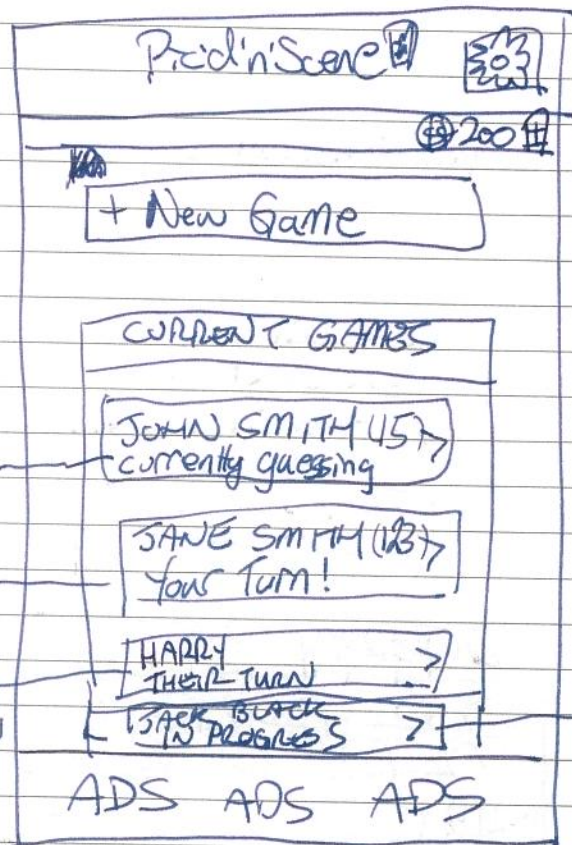 Pic'd'n'Scene
200
+ New Game
CURRENT GAMES
JOHN SMITH (15) >
currently guessing
JANE SMITH (123) >
Your Turn!
HARRY >
THEIR TURN
JACK BLACK >
IN PROGRESS
ADS ADS ADS